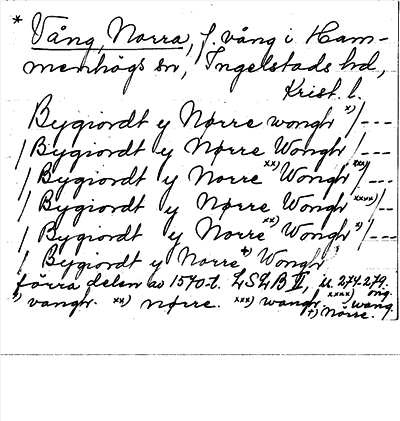 * Vång, Norra, f. vång i Ham-
menhögs sn, Ingelstads hd,
Krist. l.
Bygiordt y Nørre wongh x) /---
/ Bygiordt y Nørre Wongh /---
/ Bygiordt y Norre xx) Wongh xxx) /---
/ Bygiordt y Nørre Wongh xxxx) /--
/ Bygiordt y Norre xx) Wongh x) /---
/ Bygiordt y Norre +) Wongh
förra delen av 1570-t. LSLB V, s. 274-279.
x) vangr. xx) nørre. xxx) wangr. xxxx) wång.
+) Nörre.